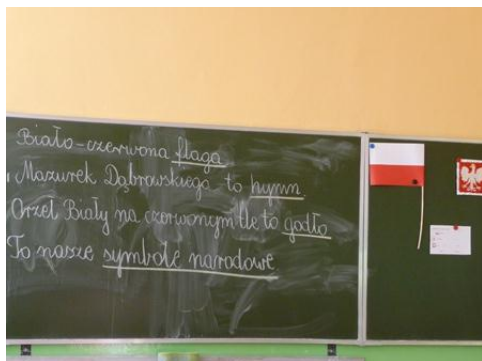 Biało-czerwona flaga
Mazurek Dąbrowskiego to hymn
Orzeł Biały na czerwonym tle to godło
To nasze symbole narodowe